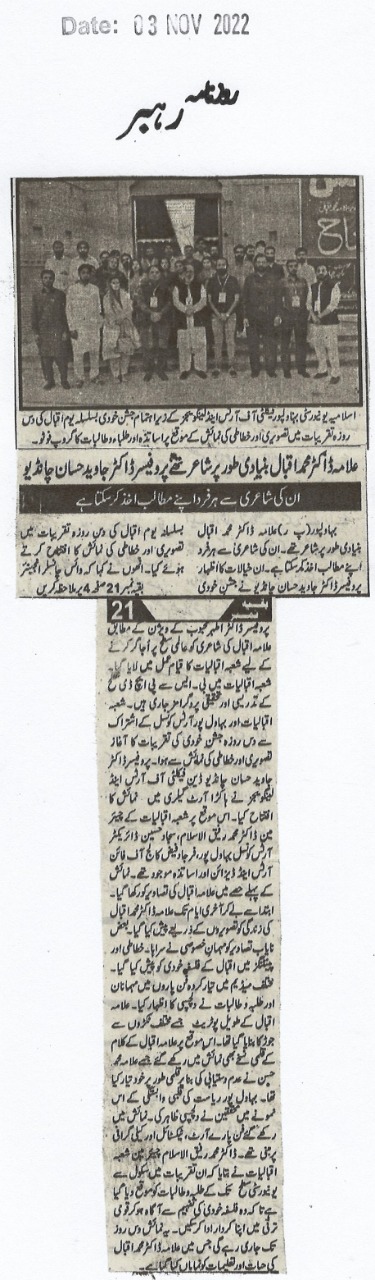 Date: 03 NOV 2022
روزنامہ
رہبر
اسلامیہ یونیورسٹی بہاولپور فیکلٹی آف آرٹس اینڈ لینگویجز کے زیر اہتمام جشن خودی بسلسلہ یوم اقبال کی دس
روزہ تقریبات میں تصویری اور خطاطی کی نمائش کے موقع پر اساتذہ اور طلبا و طالبات کا گروپ فوٹو۔
علامہ ڈاکٹر محمد اقبال بنیادی طور پر شاعر تھے پروفیسر ڈاکٹر جاوید حسان چانڈیو
ان کی شاعری سے ہر فرد اپنے مطالب اخذ کر سکتا ہے
بہاولپور (پ ر) علامہ ڈاکٹر محمد اقبال
بنیادی طور پر شاعر تھے۔ ان کی شاعری سے ہر فرد
اپنے مطالب اخذ کر سکتا ہے۔ ان خیالات کا اظہار
پروفیسر ڈاکٹر جاوید حسان چانڈیو نے جشن خودی
بسلسلہ یوم اقبال کی دس روزہ تقریبات میں
تصویری اور خطاطی کی نمائش کا افتتاح کرتے
ہوئے کیا۔ انھوں نے کہا کہ وائس چانسلر انجینئر
بقیہ نمبر 21 صفحہ 4 پر ملاحظہ کریں
بقیہ نمبر 21
پروفیسر ڈاکٹر اطہر محبوب کے ویژن کے مطابق
علامہ اقبال کی شاعری کو عالمی سطح پر اجاگر کرنے
کے لیے شعبہ اقبالیات کا قیام عمل میں لایا گیا۔
شعبہ اقبالیات میں بی۔ ایس سے پی ایچ ڈی سطح
کے تدریسی اور تحقیقی پروگرامز جاری ہیں۔ شعبہ
اقبالیات اور بہاول پور آرٹس کونسل کے اشتراک
سے دس روزہ جشن خودی کی تقریبات کا آغاز
تصویری اور خطاطی کی نمائش سے ہوا۔ پروفیسر ڈاکٹر
جاوید حسان چانڈیو ڈین فیکلٹی آف آرٹس اینڈ
لینگویجز نے ہاکڑا آرٹ گیلری میں نمائش کا
افتتاح کیا۔ اس موقع پر شعبہ اقبالیات کے چیئر
مین ڈاکٹر محمد رفیق الاسلام، سجاد حسین ڈائریکٹر
آرٹس کونسل بہاول پور، فرجاد فیض کالج آف فائن
آرٹس اینڈ ڈیزائن اور اساتذہ موجود تھے۔ نمائش
کے پہلے حصے میں علامہ اقبال کی تصاویر کو رکھا گیا۔
ابتدا سے لے کر آخری ایام تک علامہ ڈاکٹر محمد اقبال
کی زندگی کو تصویروں کے ذریعے پیش کیا گیا۔ بعض
نایاب تصاویر کو مہمان خصوصی نے سراہا۔ خطاطی اور
پینٹنگز میں اقبال کے فلسفہ خودی کو پیش کیا گیا۔
مختلف میڈیم میں تیار کردہ فن پاروں میں مہمانان
اور طلبہ و طالبات نے دلچسپی کا اظہار کیا۔ علامہ
اقبال کے طویل پورٹریٹ جسے مختلف ٹکڑوں سے
جوڑ کا بنایا گیا تھا۔ اس موقع پر علامہ اقبال کے کلام
کے قلمی نسخے بھی نمائش میں رکھے گئے جسے علامہ محمد
حسین نے عدم دستیابی کی بنا پر قلمی طور پر خود تیار کیا
تھا۔ بہاول پور ریاست کی قلمی وابستگی کے اس
نمونے میں محققین نے دلچسپی ظاہر کی۔ نمائش میں
رکھے گئے فن پارے آرٹ، ٹیکسٹائل اور کیلی گرافی
پر مبنی تھے۔ ڈاکٹر محمد رفیق الاسلام چیئرمین شعبہ
اقبالیات نے بتایا کہ ان تقریبات میں سکول سے
یونیورسٹی سطح تک کے طلبہ و طالبات کو موقع دیا گیا
ہے تاکہ وہ فلسفہ خودی کی تفہیم سے آگاہ ہو کر قومی
ترقی میں اپنا کردار ادا کر سکیں۔ یہ نمائش دس روز
تک جاری رہے گی جس میں علامہ ڈاکٹر محمد اقبال
کی حیات اور تعلیمات کو نمایاں کیا گیا ہے۔